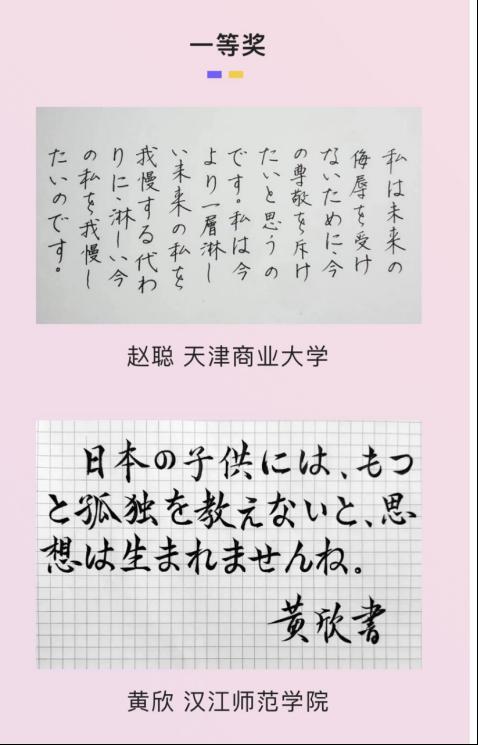 一等奖
私は未来の
侮辱を受け
ないために、今
の尊敬を斥け
たいと思うの
です。私は今
より一層淋し
い未来の私を
我慢する代わ
りに、淋しい今
の私を我慢し
たいのです。
赵聪 天津商业大学
日本の子供には、もつ
と孤独を教えないと、思
想は生まれませんね。
黄欣書
黄欣 汉江师范学院